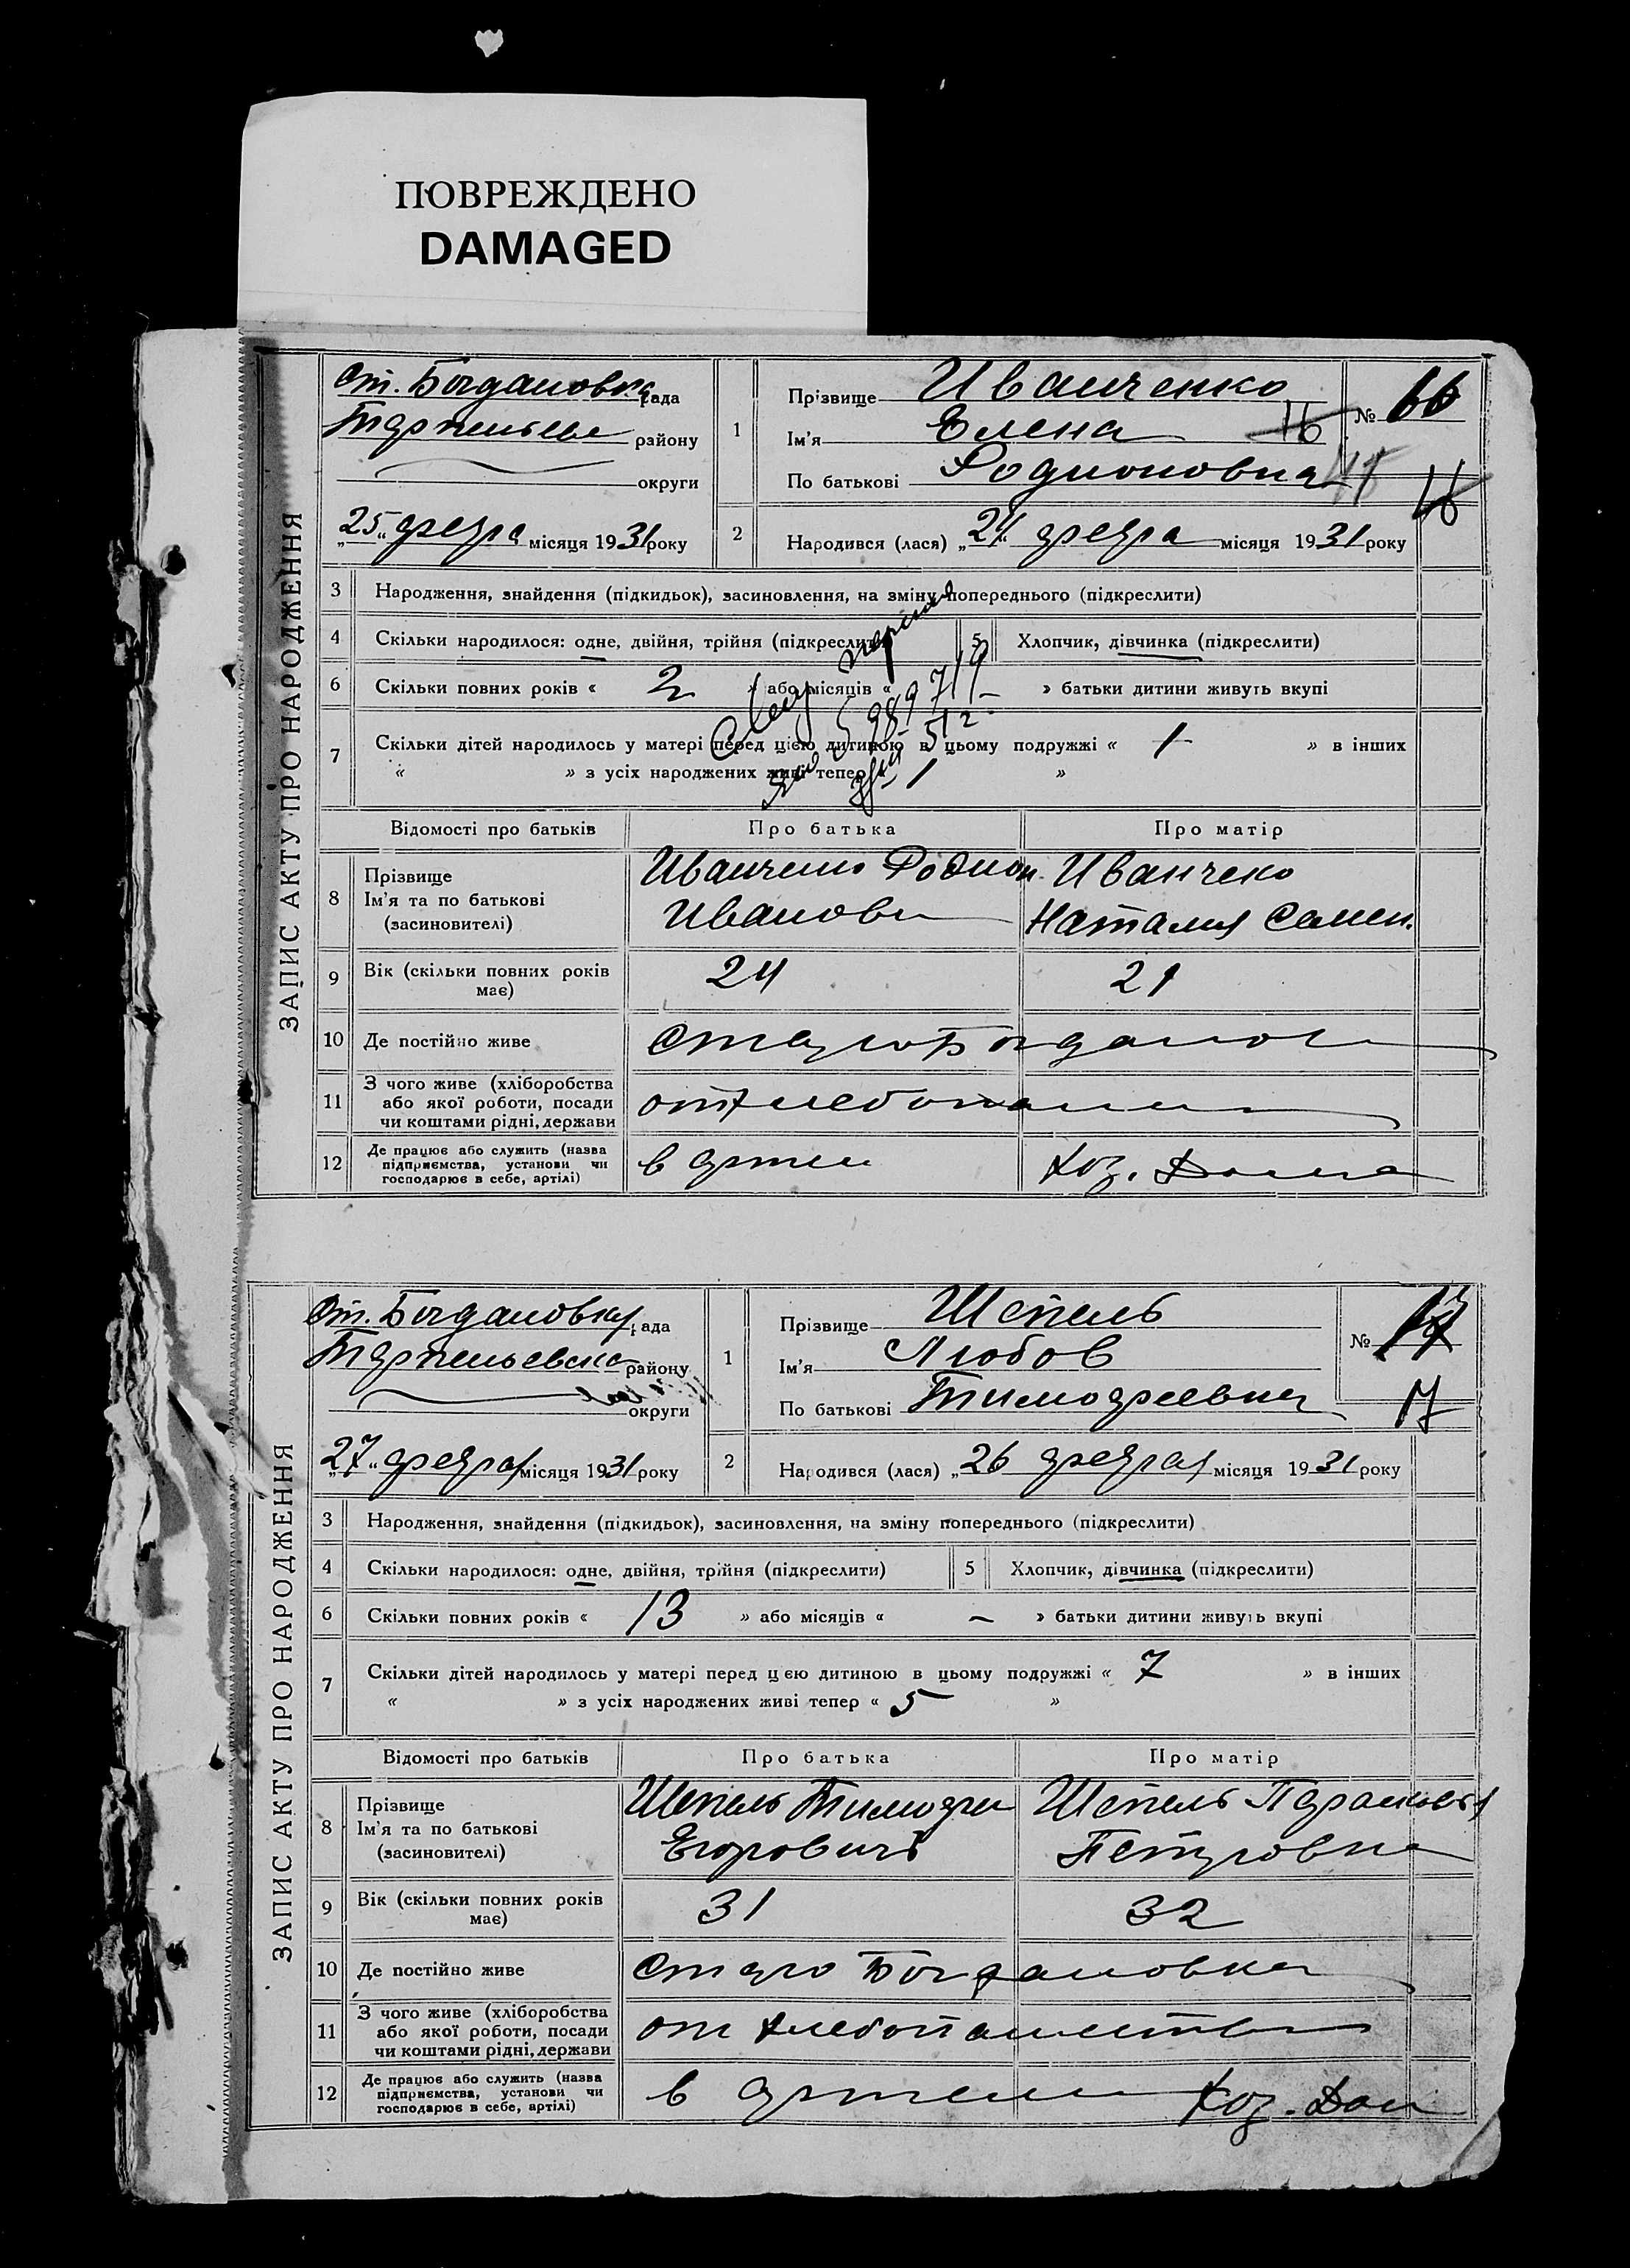 ПОВРЕЖДЕНО
DAMAGED
ЗАПИС АКТУ ПРО НАРОДЖЕННЯ
Ст. Богдановка рада
району
округи
„25“ февра місяця 1931 року
1
Прізвище Иванченко
Ім'я Елена 16
По батькові Родионовна 17
№ 16
16
2
Народився (лася) „24“ февра місяця 1931 року
3 Народження, знайдення (підкидьок), засиновлення, на зміну попереднього (підкреслити)
4 Скільки народилося: одне, двійня, трійня (підкреслити) 5 Хлопчик, дівчинка (підкреслити)
6 Скільки повних років « 2 » або місяців « – » батьки дитини живуть вкупі
7 Скільки дітей народилось у матері перед цією дитиною в цьому подружжі « 1 » в інших
« » з усіх народжених живі тепер « 1 »
Відомості про батьків Про батька Про матір
8 Прізвище
Ім'я та по батькові
(засиновителі)
Иванченко Родион
Иванови
Иванчеко
Наталия Семен.
9 Вік (скільки повних років має) 24 21
10 Де постійно живе Старо Богданов
11 З чого живе (хліборобства
або якої роботи, посади
чи коштами рідні, держави
12 Де працює або служить (назва
підприємства, установи чи
господарює в себе, артілі)
в артели Хоз. Дома
ЗАПИС АКТУ ПРО НАРОДЖЕННЯ
Ст. Богдановка рада
Терпеньевска району
округи
„27“ февраля місяця 1931 року
1
Прізвище Шепель
Ім'я Любов
По батькові Тимофеевна
№ 17
17
2
Народився (лася) „26 февраля місяця 1931 року
3 Народження, знайдення (підкидьок), засиновлення, на зміну попереднього (підкреслити)
4 Скільки народилося: одне, двійня, трійня (підкреслити) 5 Хлопчик, дівчинка (підкреслити)
6 Скільки повних років « 13 » або місяців « – » батьки дитини живуть вкупі
7 Скільки дітей народилось у матері перед цією дитиною в цьому подружжі « 7 » в інших
« » з усіх народжених живі тепер « 5 »
Відомості про батьків Про батька Про матір
8 Прізвище
Ім'я та по батькові
(засиновителі)
Шепель Тимофеи
Егоровичъ
Шепель Парасковья
Петровна
9 Вік (скільки повних років має) 31 32
10 Де постійно живе Старо Богдановка
11 З чого живе (хліборобства
або якої роботи, посади
чи коштами рідні, держави
от хлебопашества
12 Де працює або служить (назва
підприємства, установи чи
господарює в себе, артілі)
в артели Хоз. Дом